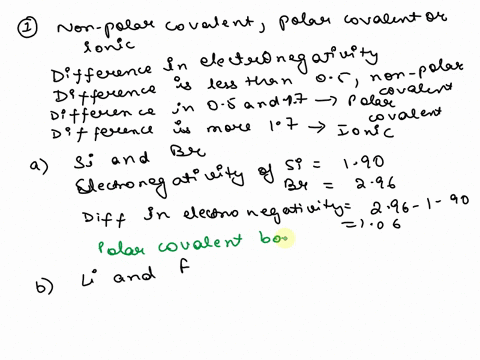 ① Non-polar covalent, polar covalent or
Ionic
Difference in electronegativity
Difference is less than 0.5, non-polar
covalent
Difference in 0.5 and 1.7 → Polar
covalent
Difference is more 1.7 → Ionic
a) Si and Br
Electronegativity of Si = 1.90
Br = 2.96
Diff in electronegativity = 2.96-1-90
=1.06
Polar covalent bo
b) Li and F